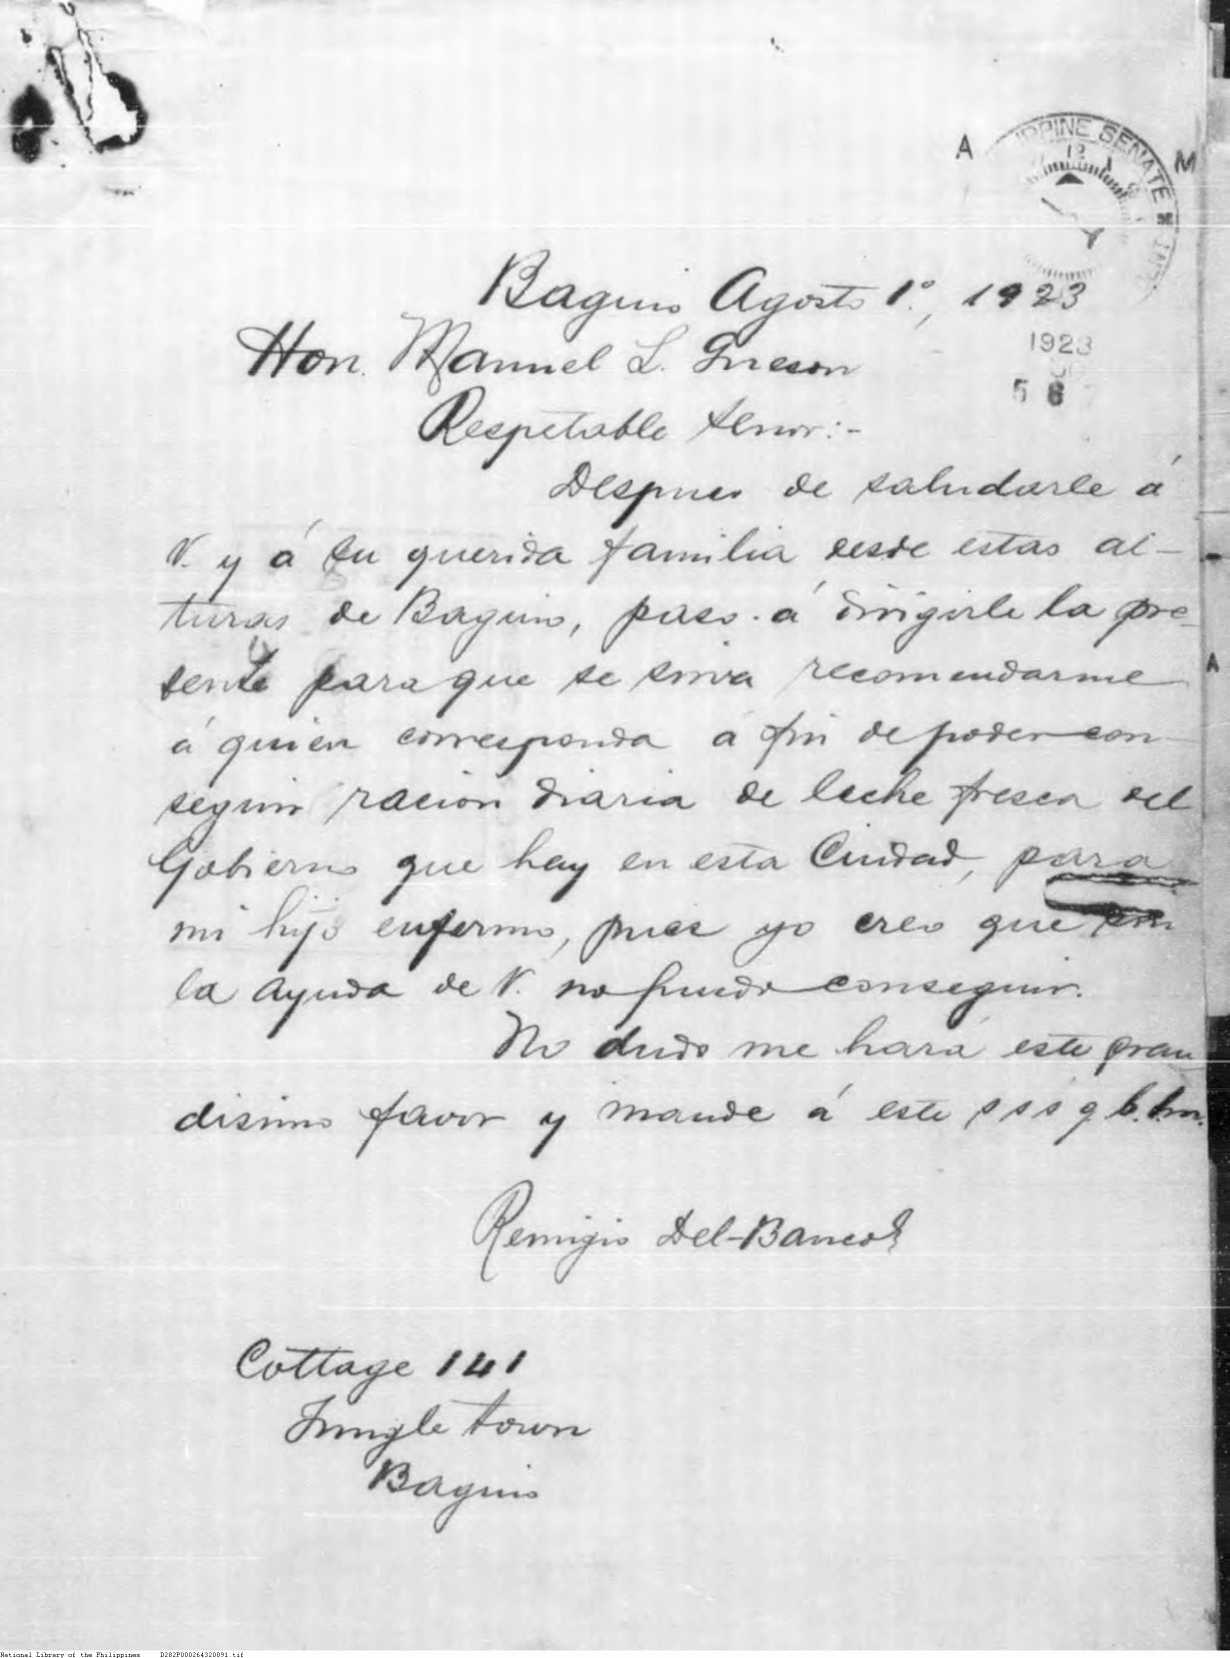 PPINE SENATE
A M
12
Baguio Agosto 1º, 1923
1923
Hon. Manuel L. Quezon
5 6
Respetable señor:-
Despues de saludarle á
V. y á su querida familia desde estas al-
turas de Baguio, paso á dirigirle la pre-
sente para que se sirva recomendarme
á quien corresponda á fin de poder con-
seguir racion diaria de leche fresca del
Gobierno que hay en esta Ciudad, para
mi hijo enfermo, pues yo creo que sin
la ayuda de V. no puedo conseguir.
No dudo me hará este gran
disimo favor y mande á este s s s q. b. s. m.
Remigio Del-
Cottage 141
Jungle town
Baguio
A
National Library of the Philippines D282P000264320891.tif